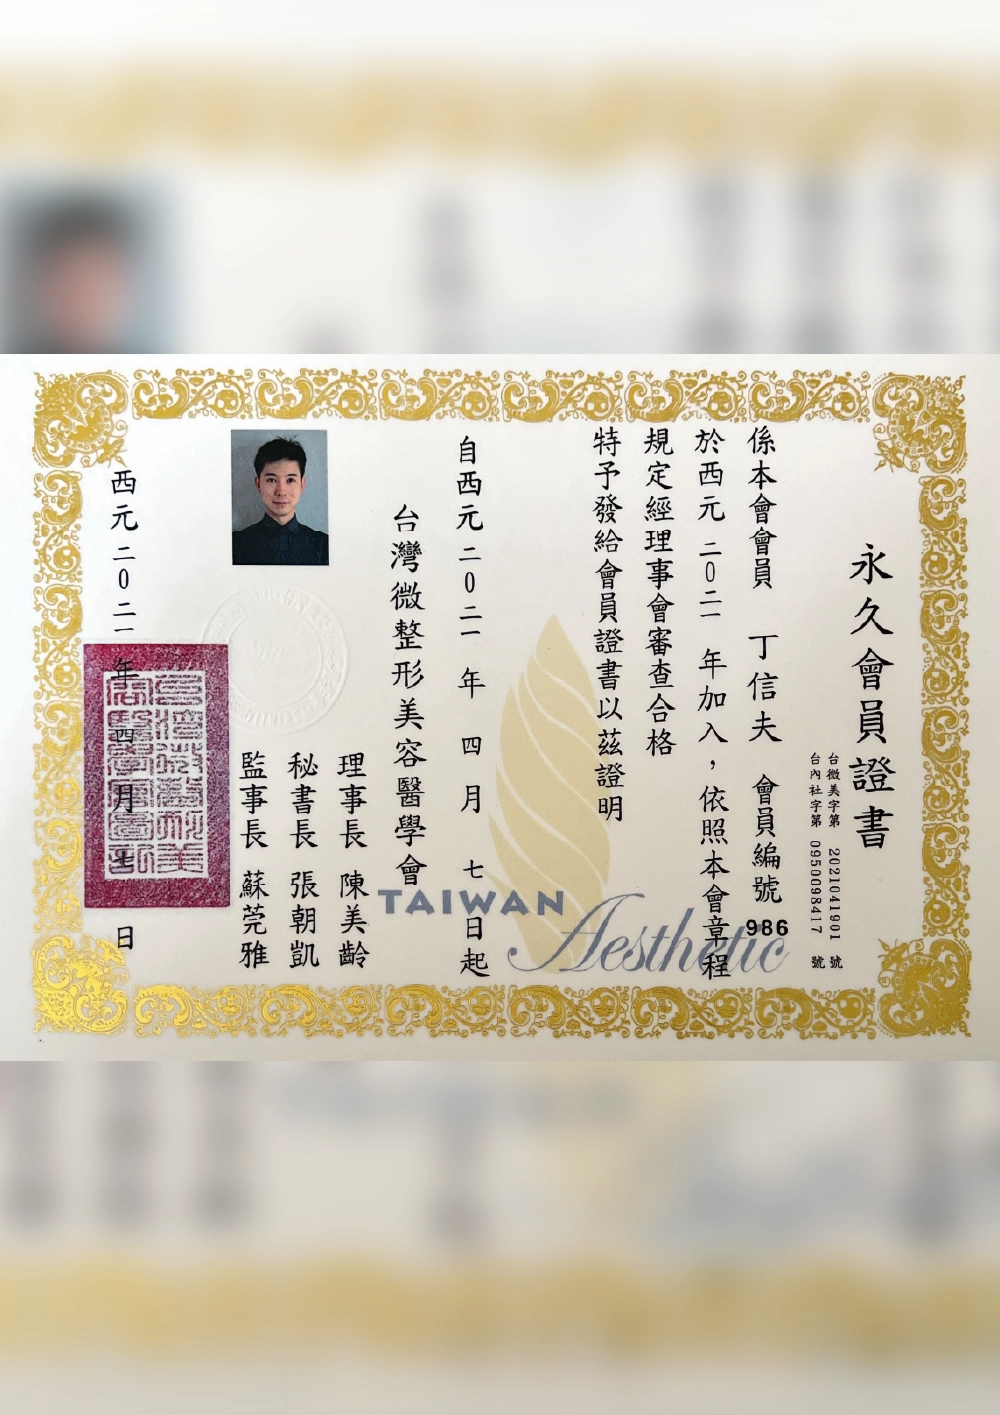 永久會員證書
台微美字第 2021041901 號
台內社字第 0950098417 號
係本會會員 丁信夫 會員編號 986
於西元 二〇二一 年加入，依照本會章程
規定經理事會審查合格
特予發給會員證書以茲證明
TAIWAN
Aesthetic
自西元 二〇二一 年 四 月 七 日起
台灣微整形美容醫學會
理事長 陳美齡
秘書長 張朝凱
監事長 蘇莞雅
西元 二〇二一 年 四 月 七 日